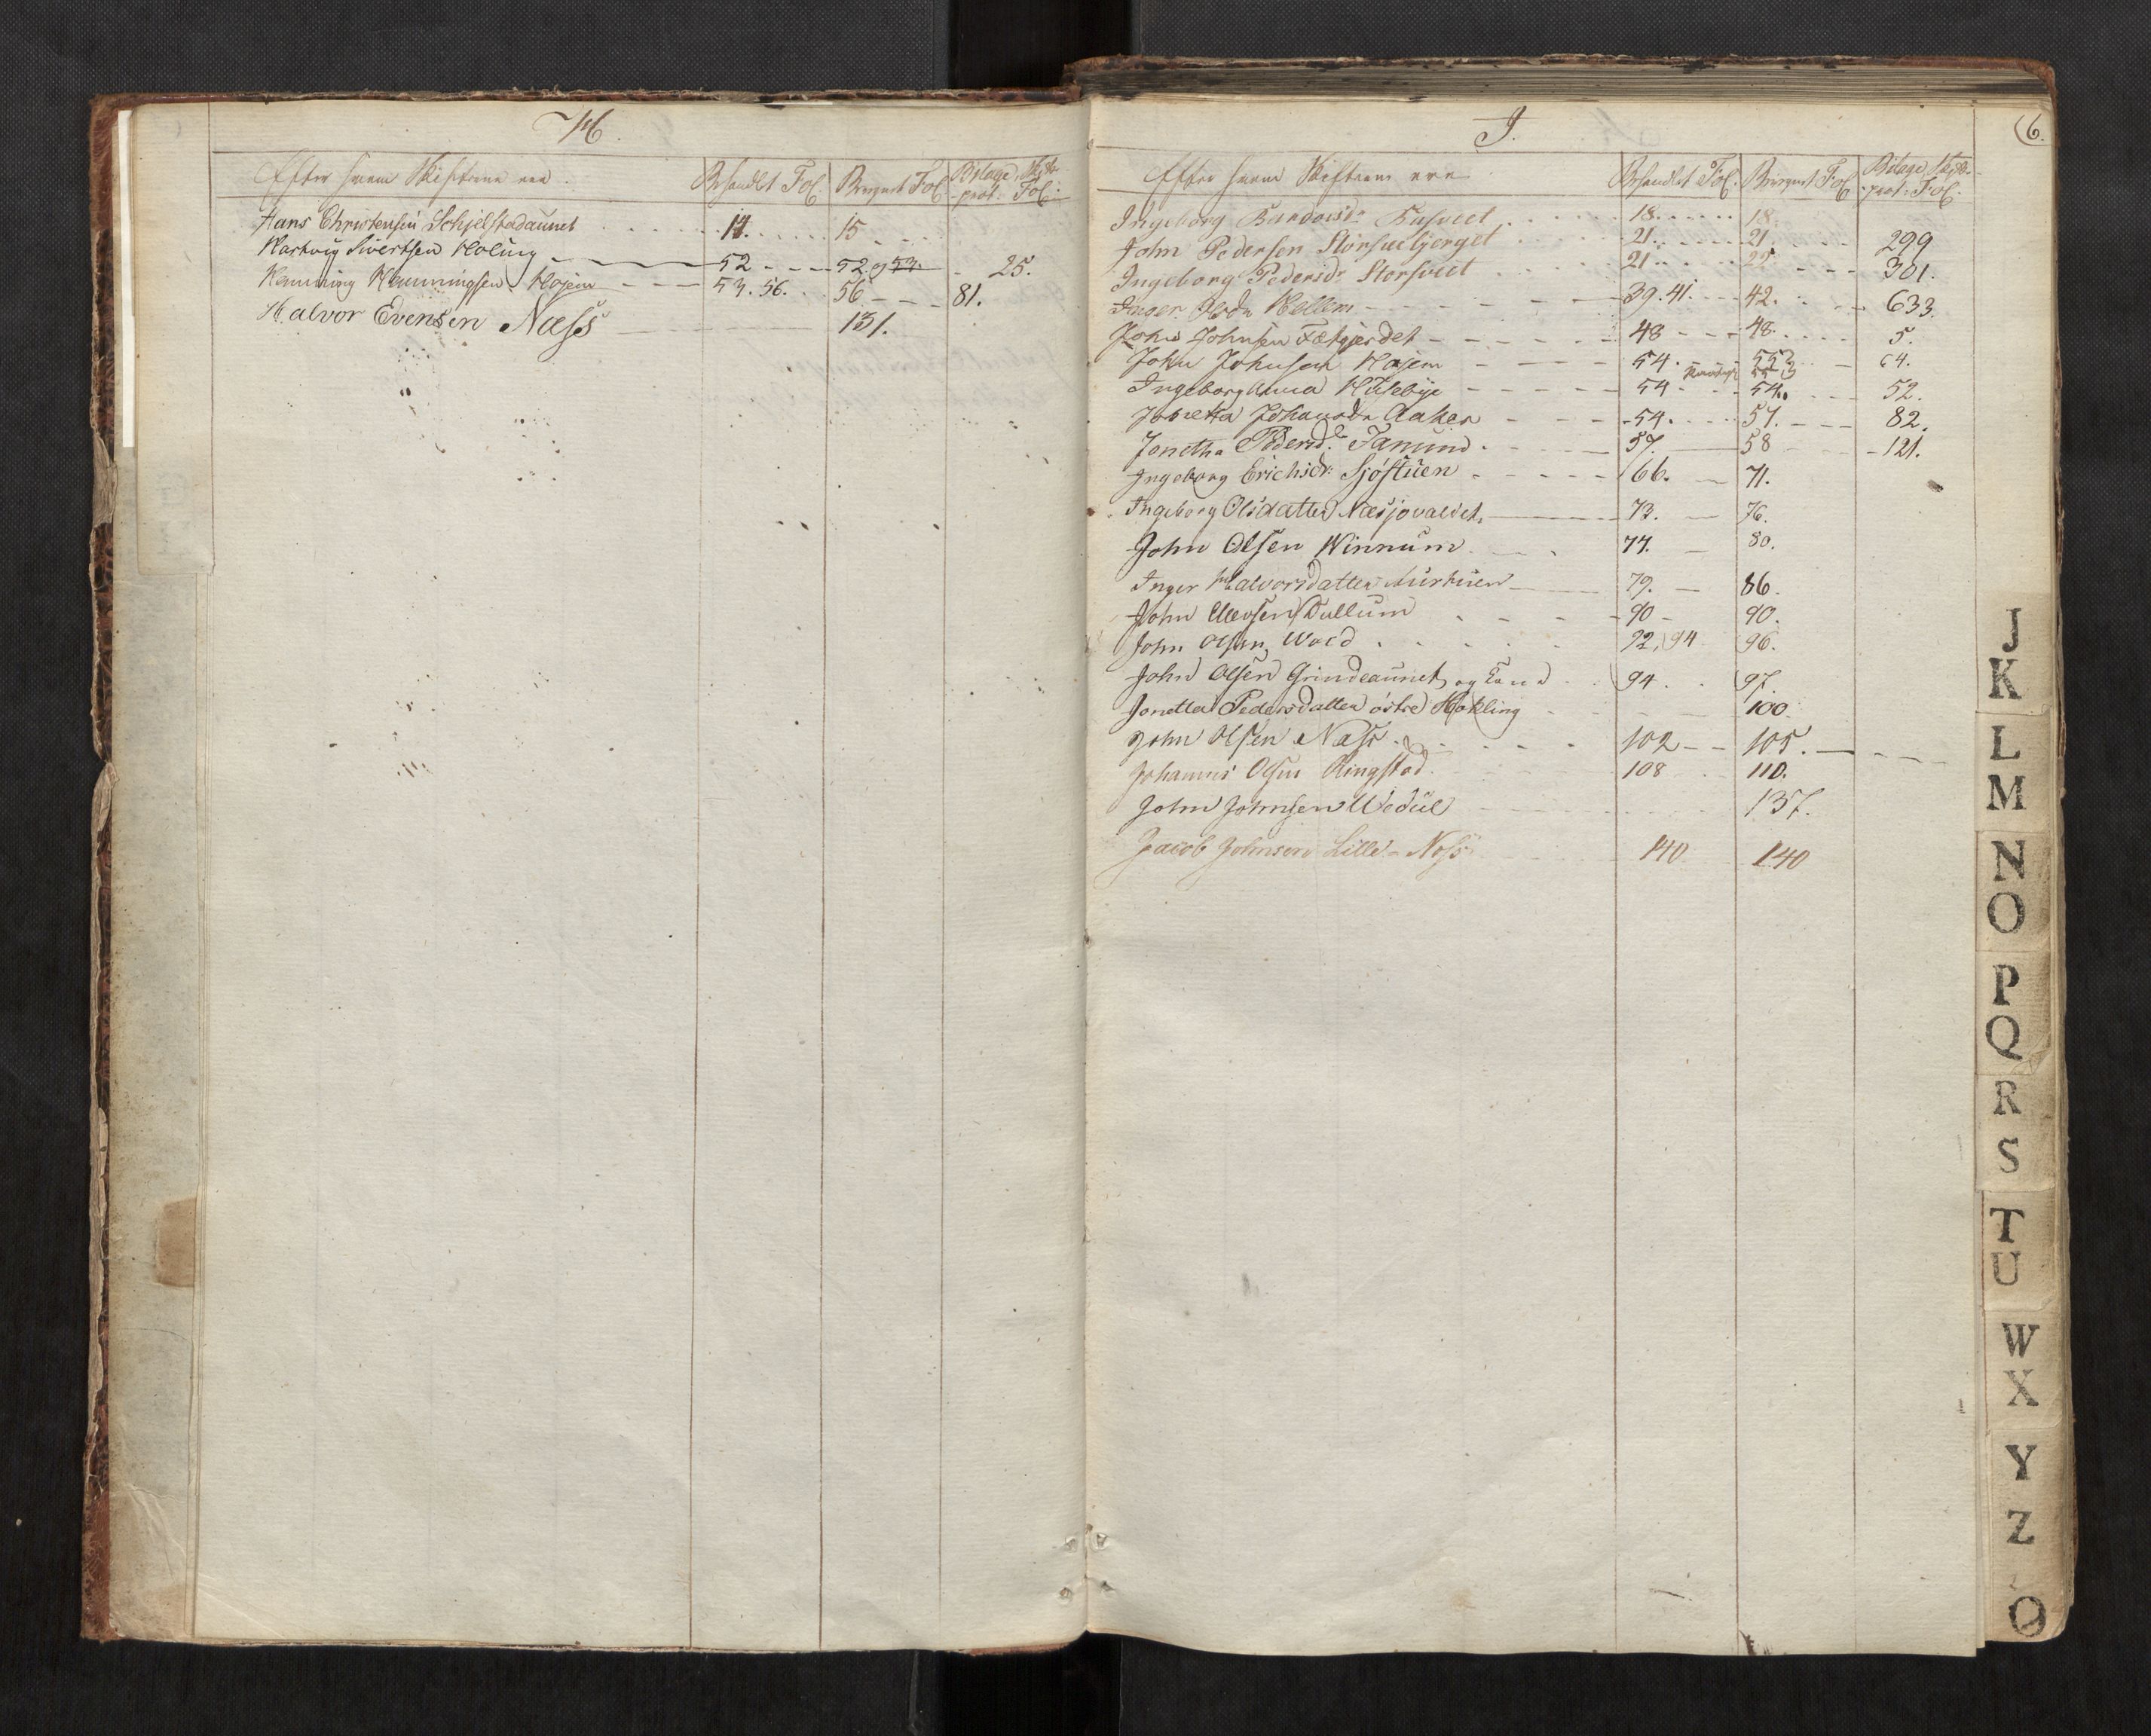 H.
Efter hvem Skifterne ere. Behandlet Fol. Begynt Fol. Bilage Skifte-
prot: Fol:
Hans Christensen Schjelstadaunet 14. 15
Hartvig Sivertsen Holing 52 52 og 53. 25.
Henning Henningsen Hojem 53. 56. 56 81.
Halvor Evensen Næss 131.
I.
6.
Efter hvem Skifterne ere Behandlet Fol. Fol. Bilage Skifte-
prot: Fol.
Ingeborg 18. 18.
John Pedersen 21. 21. 299
Ingeborg Pedersdr Storsveet 21 301.
Inger Hellem 39. 41. 42. 633.
John Johnsen Fætgjerdet 48 48. 5.
John Johnsen Hojem 54. 64.
Ingeborganna Husebye 54 54. 52.
Jonetta Johansdr Aaker 54. 57. 82.
Jonetha Pedersdr. Fanum 57. 58 121.
Ingeborg Erichsdr: Sjøstuen 66. 71.
Ingeborg Olsdatter Næsjovaldet. 73. 76.
John Olsen Winnum 77. 80.
Inger Halvorsdatter 79. 86.
John Dullum 90 90.
John Olsen 92, 94 96.
John Olsen Grindeaunet 94. 97.
Jonetta Pedersdatter østre Hokling 100.
John Olsen Næss 102 105.
Johannes Olsen Ringstad 108 110.
John Johnsen 137.
Jacob Johnsen Lille-Næss 140 140
J
K
L
M
N
O
P
Q
R
S
T
U
W
X
Y
Z
Ø